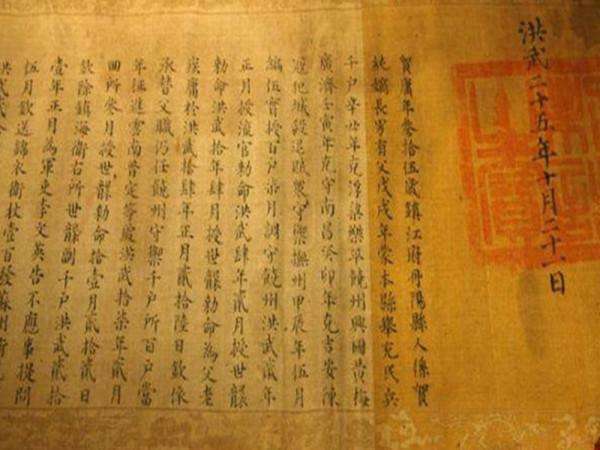 洪武二十五年十月二十一日
賀廣年叁拾伍歲鎮江府丹陽縣人係賀
純嫡長男有父戊戌年蒙本縣舉充民兵
千戶辛丑年克浮梁樂平饒州興國黃梅
廣濟壬寅年克守南昌癸卯年克吉安陳
寇犯城殺退賊眾守禦撫州甲辰年伍月
編伍實授百戶柒月調守饒州洪武貳年
正月授流官勅命洪武肆年貳月授世襲
勅命洪武拾年肆月授世襲勅命為父老
疾廣於洪武拾肆年正月貳拾陸日欽依
承替父職仍任饒州守禦千戶所百戶當
年征進雲南普定等處洪武拾柒年貳月
回所叁月授世襲勅命拾壹月貳拾貳日
欽除鎮海衛右所世襲副千戶洪武貳拾
壹年正月為軍吏李文英告不應事提問
伍月欽送錦衣衛杖壹百發蘇州衛
洪武貳拾